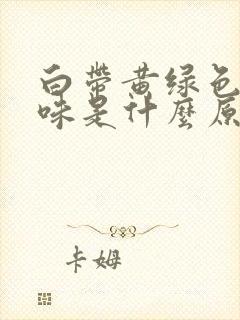 白带黄绿色
味是什麼原
卡姆